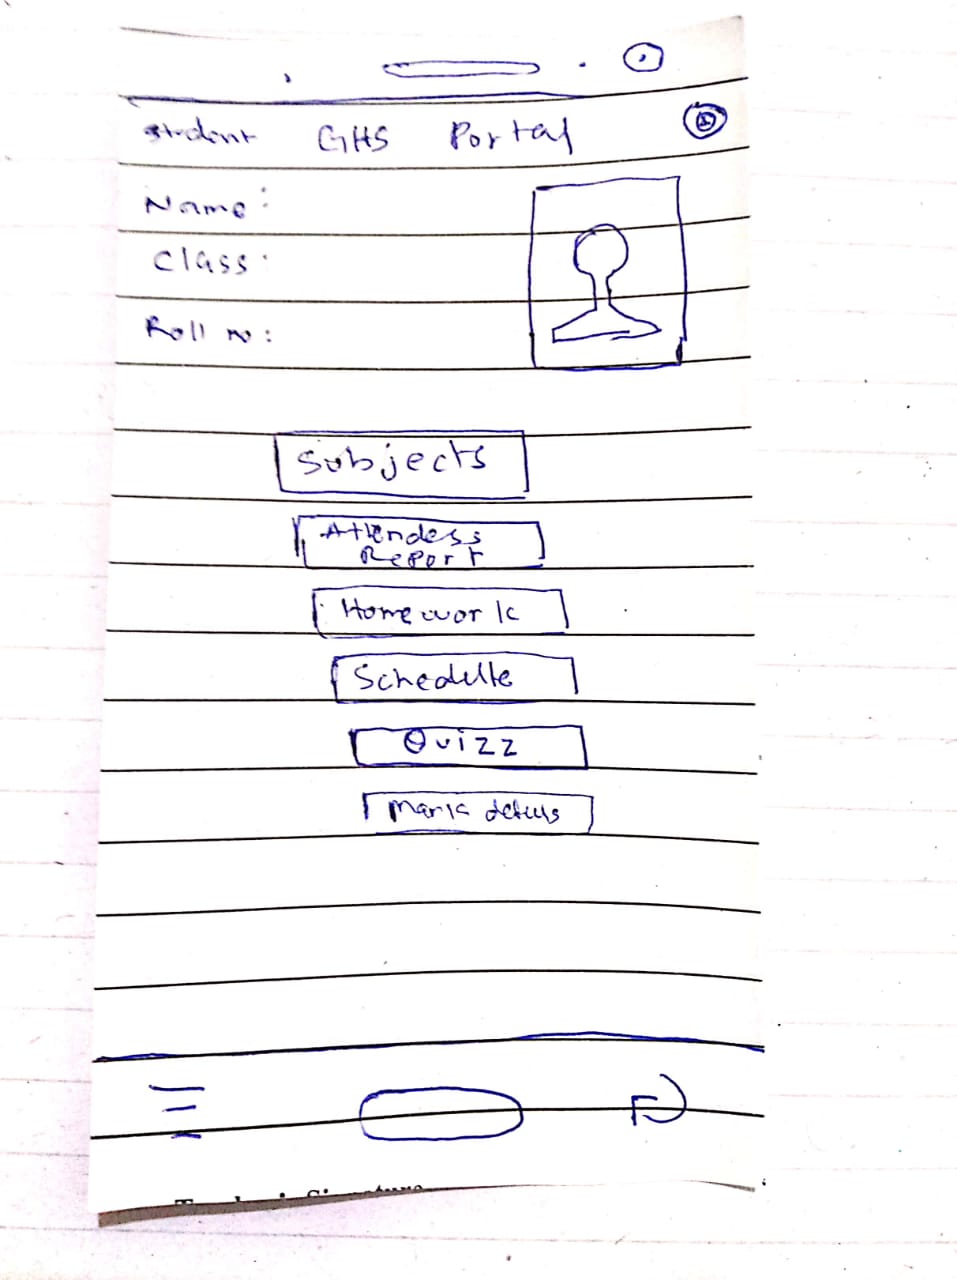 Student GHS Portal
Name:
Class:
Roll no:
Subjects
Attendess
Report
Homework
Schedulte
Quizz
Mark detuls